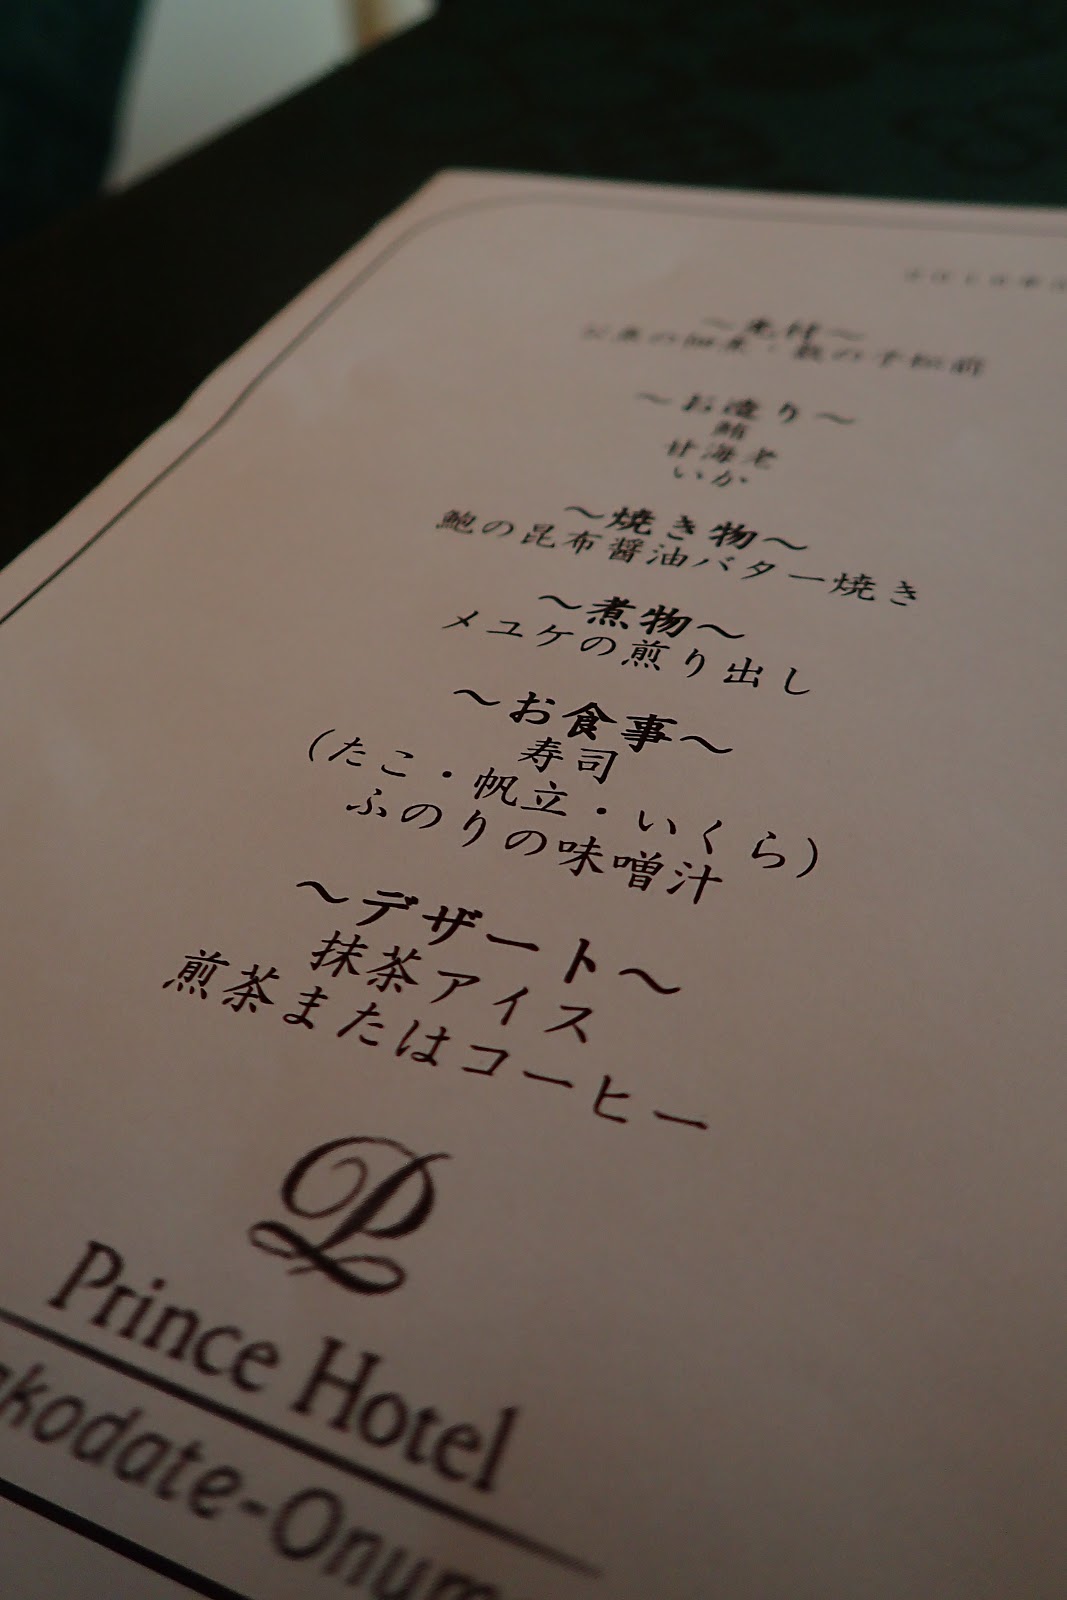 ～先付～
公魚の佃煮・数の子松前
～お造り～
鮪
甘海老
いか
～焼き物～
鮑の昆布醤油バター焼き
～煮物～
メユケの煎り出し
～お食事～
寿司
（たこ・帆立・いくら）
ふのりの味噌汁
～デザート～
抹茶アイス
煎茶またはコーヒー
Prince Hotel
akodate-Onum